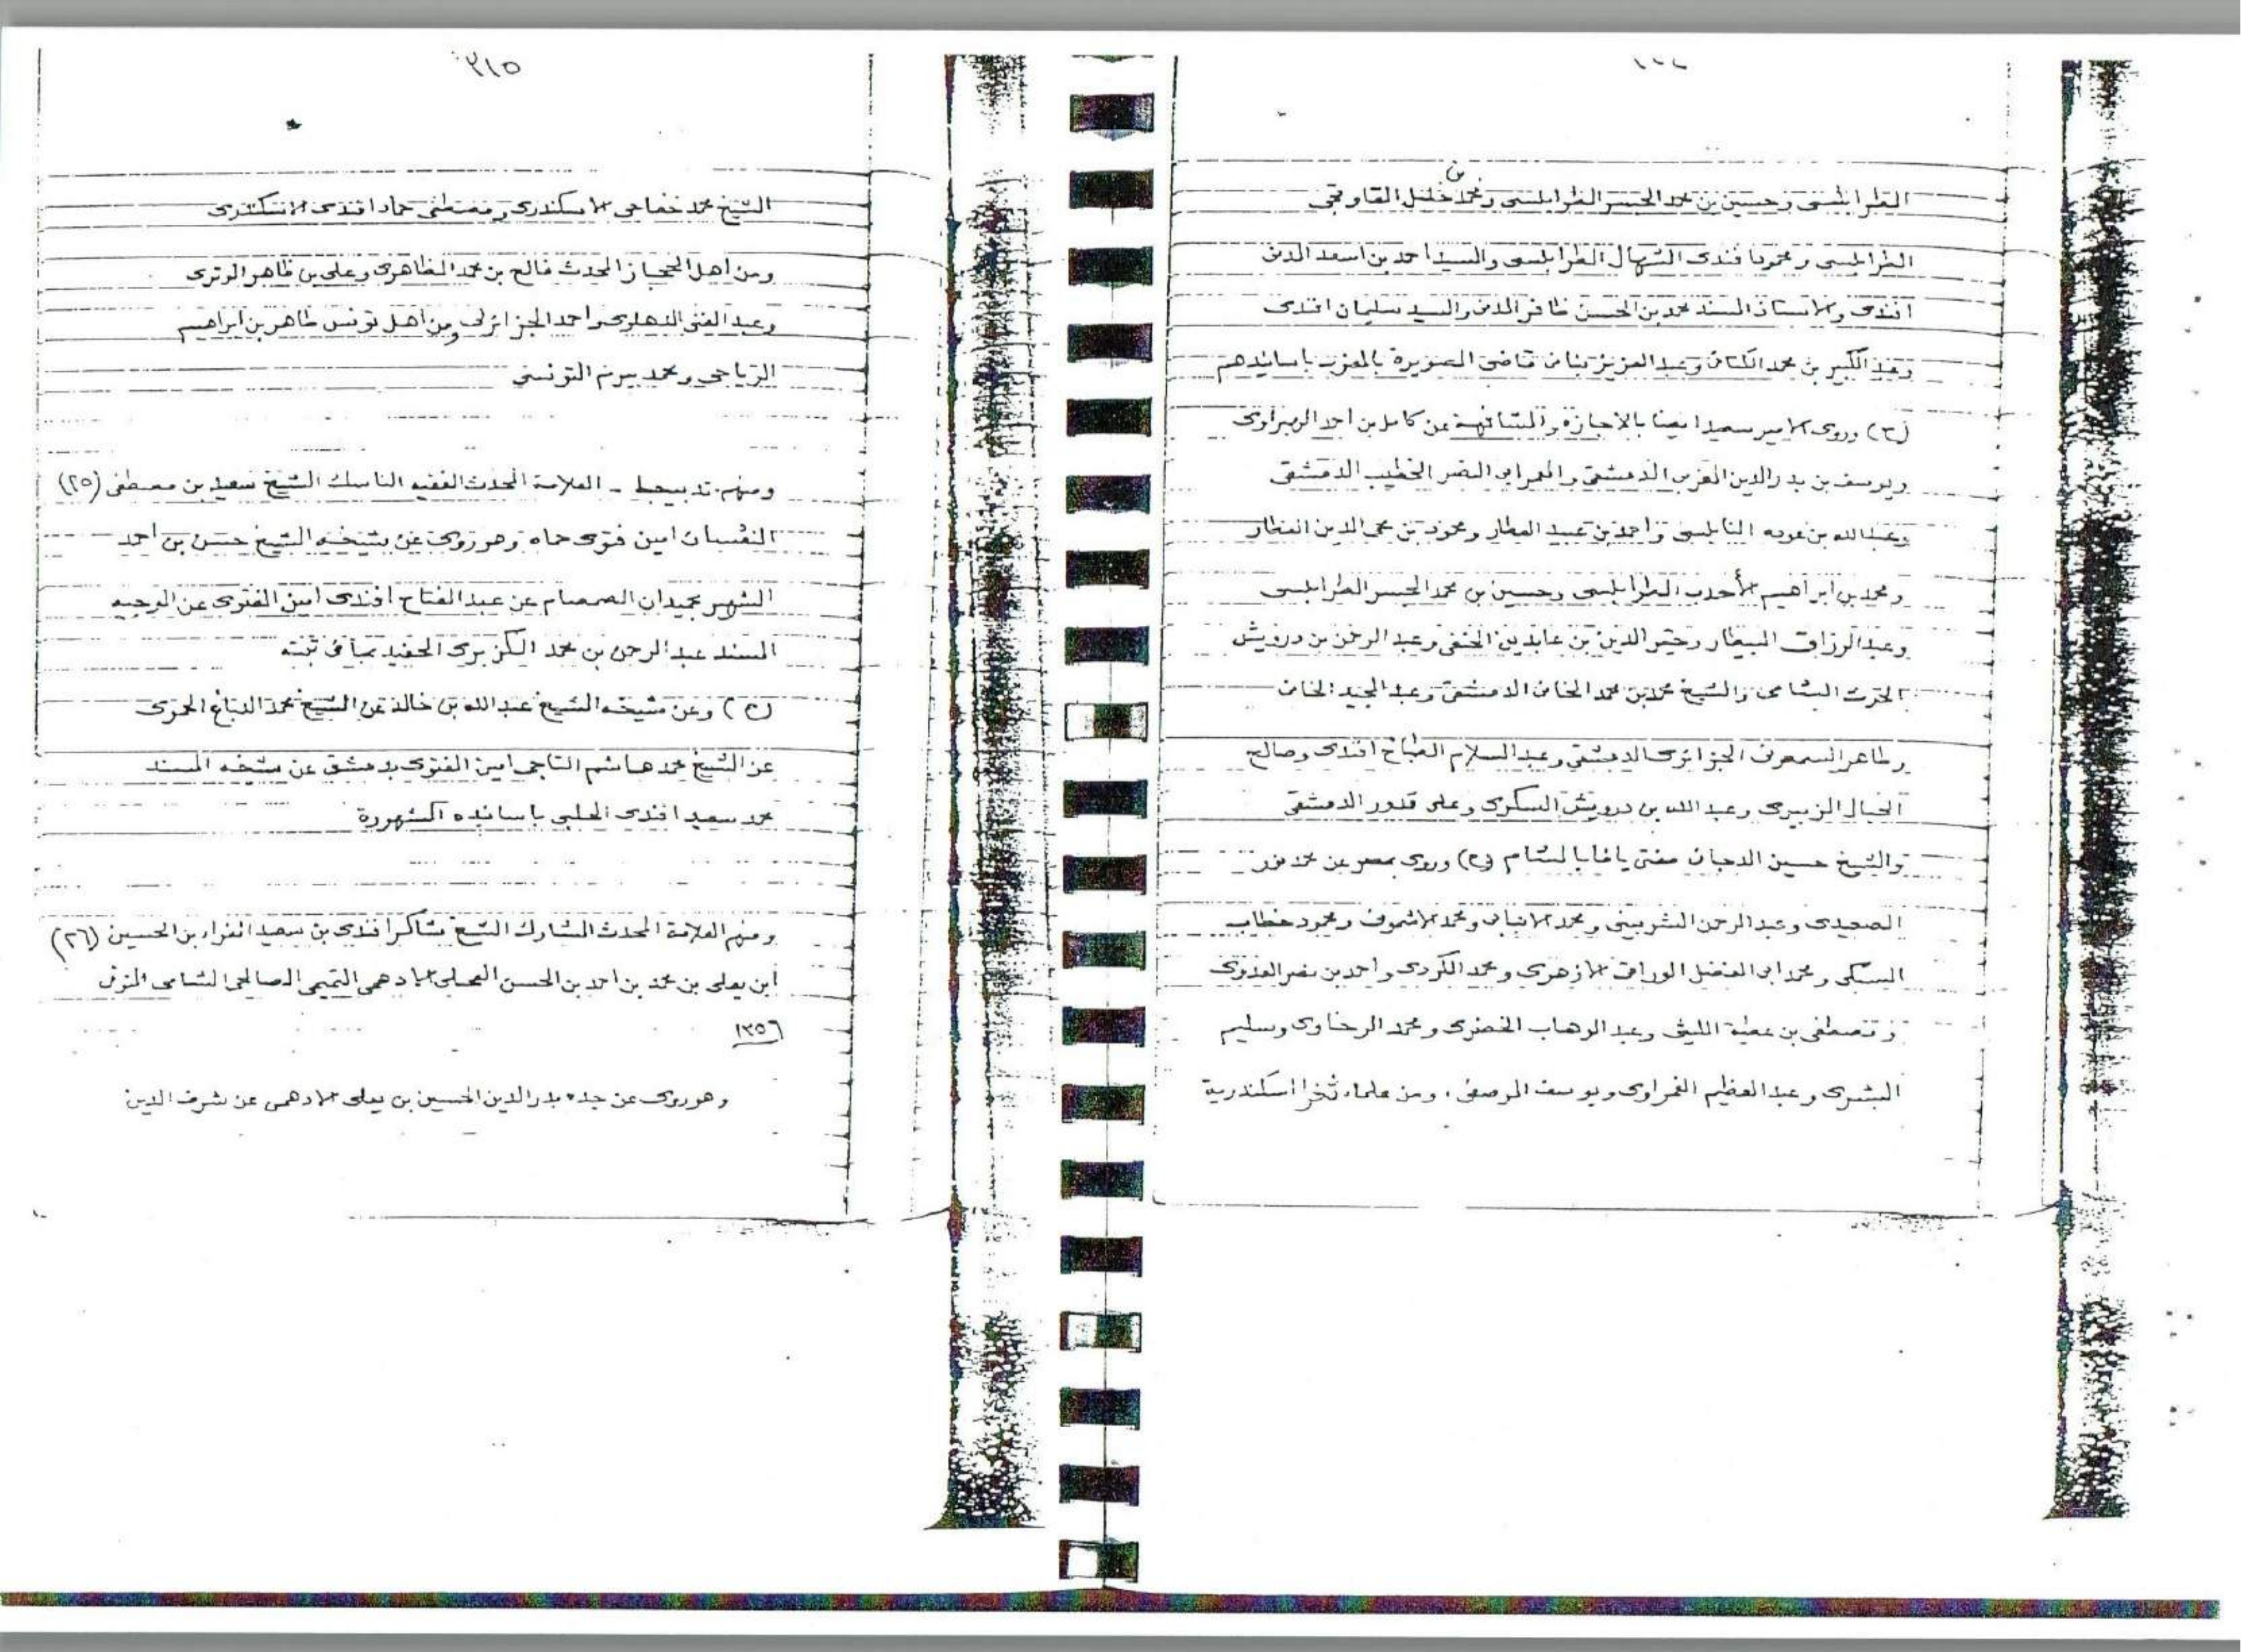 الطرابلسى وحسين بن محمد الجسر الطرابلسى ومحمد بن خليل القاوقجى
الطرابلسى ومحمود افندى الشهال الطرابلسى والسيد احمد بن اسعد المدنى
افندى والاستاذ المسند محمد بن الحسن ظافر المدنى والسيد سليمان افندى
وعبد الكبير بن محمد الكتانى وعبد العزيز بنانى قاضى الصويرة بالمغرب باسانيدهم
(٢) وروى الامير سعيد ايضا بالاجازة والمشافهة عن كامل بن احمد الهبراوى
ويوسف بن بدر الدين المغربى الدمشقى والمعمر ابى النصر الخطيب الدمشقى
وعبد الله بن عوده النابلسى واحمد بن عبيد العطار ومحمود بن محى الدين العطار
ومحمد بن ابراهيم الأحدب الطرابلسى وحسين بن محمد الجسر الطرابلسى
وعبد الرزاق البيطار وخير الدين بن عابدين الحنفى وعبد الرحمن بن درويش
الحوت الشامى والشيخ محمد بن محمد الخانى الدمشقى وعبد المجيد الخانى
وطاهر السمعونى الجزائرى الدمشقى وعبد السلام الطباخ افندى وصالح
الخيال الزبيرى وعبد الله بن درويش السكرى وعلى قدور الدمشقى
والشيخ حسين الدجانى مفتى يافا بالشام (٣) وروى بمصر عن محمد نور
الصعيدى وعبد الرحمن الشربينى ومحمد الانبابى ومحمد الاشمونى ومحمود خطاب
السبكى ومحمد ابى الفضل الوراقى الازهرى ومحمد الكردى واحمد بن نصر العدوى
ومصطفى بن عطية الليثى وعبد الوهاب الخضرى ومحمد الرخاوى وسليم
البشرى وعبد العظيم الغمراوى ويوسف المرصفى، ومن علماء ثغر اسكندرية
٣١٥
الشيخ محمد خفاجى الاسكندرى ومصطفى حماد افندى الاسكندرى
ومن اهل الحجاز المحدث فالح بن محمد الظاهرى وعلى بن ظاهر الوترى
وعبد الغنى واحمد الجزائرلى ومن اهل تونس طاهر بن ابراهيم
الرياحى ومحمد بيرم التونسى
ومنهم - العلامة المحدث الفقيه الناسك الشيخ سعيد بن مصطفى (٢٥)
النعسان امين فتوى حماه وهو روى عن شيخه الشيخ حسن بن احمد
الشهير الصمصام عن عبد الفتاح افندى امين الفتوى عن الوجيه
المسند عبد الرحمن بن محمد الكزبرى الحفيد بما فى ثبته
(٢) وعن شيخه الشيخ عبد الله بن خالد عن الشيخ محمد الدباغ الحموى
عن الشيخ محمد هاشم التاجى امين الفتوى بدمشق عن شيخه المسند
محمد سعيد افندى الحلبى باسانيده المشهورة
ومنهم العلامة المحدث المشارك الشيخ شاكر افندى بن سعيد الفراء بن الحسين (٢٦)
ابن يعلى بن محمد بن احمد بن الحسن الادهمى التميمى الصالحى الشامى المتوفى
١٣٥٦
وهو روى عن جده بدر الدين الحسين بن يعلى الادهمى عن شرف الدين